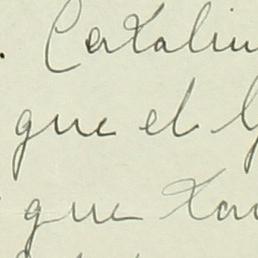 . Catalin
que el
que